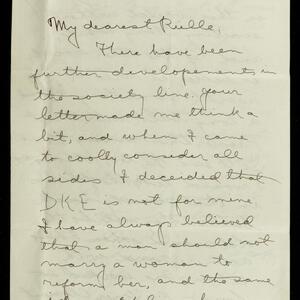 My dearest Rulle,
There have been
further developements in
the society line. your
letter made me think a
bit, and when I came
to coolly consider all
sides I deceided that
DKE is not for mine
I have always believed
that a man should not
marry a woman to
reform her, and the same